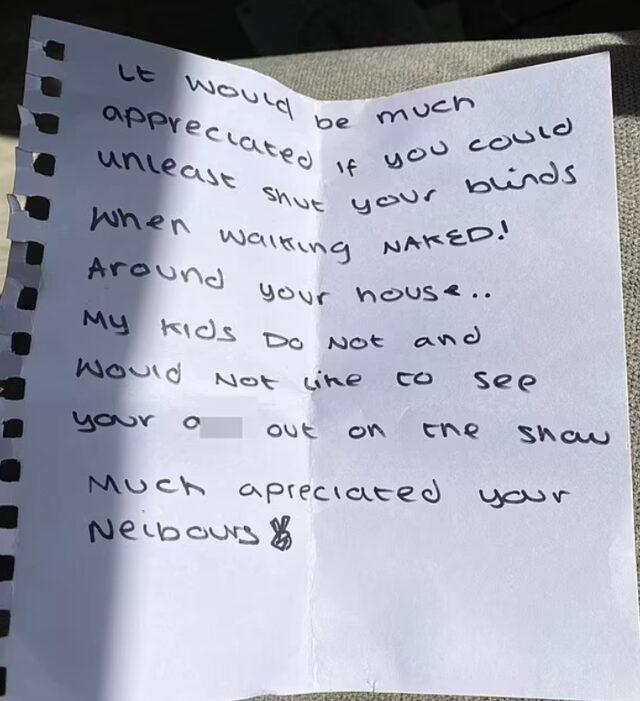 It would be much
appreciated if you could
unleast shut your blinds
When walking NAKED!
Around your house..
My kids Do Not and
Would Not like to see
your a out on the show
Much apreciated your
Neibours